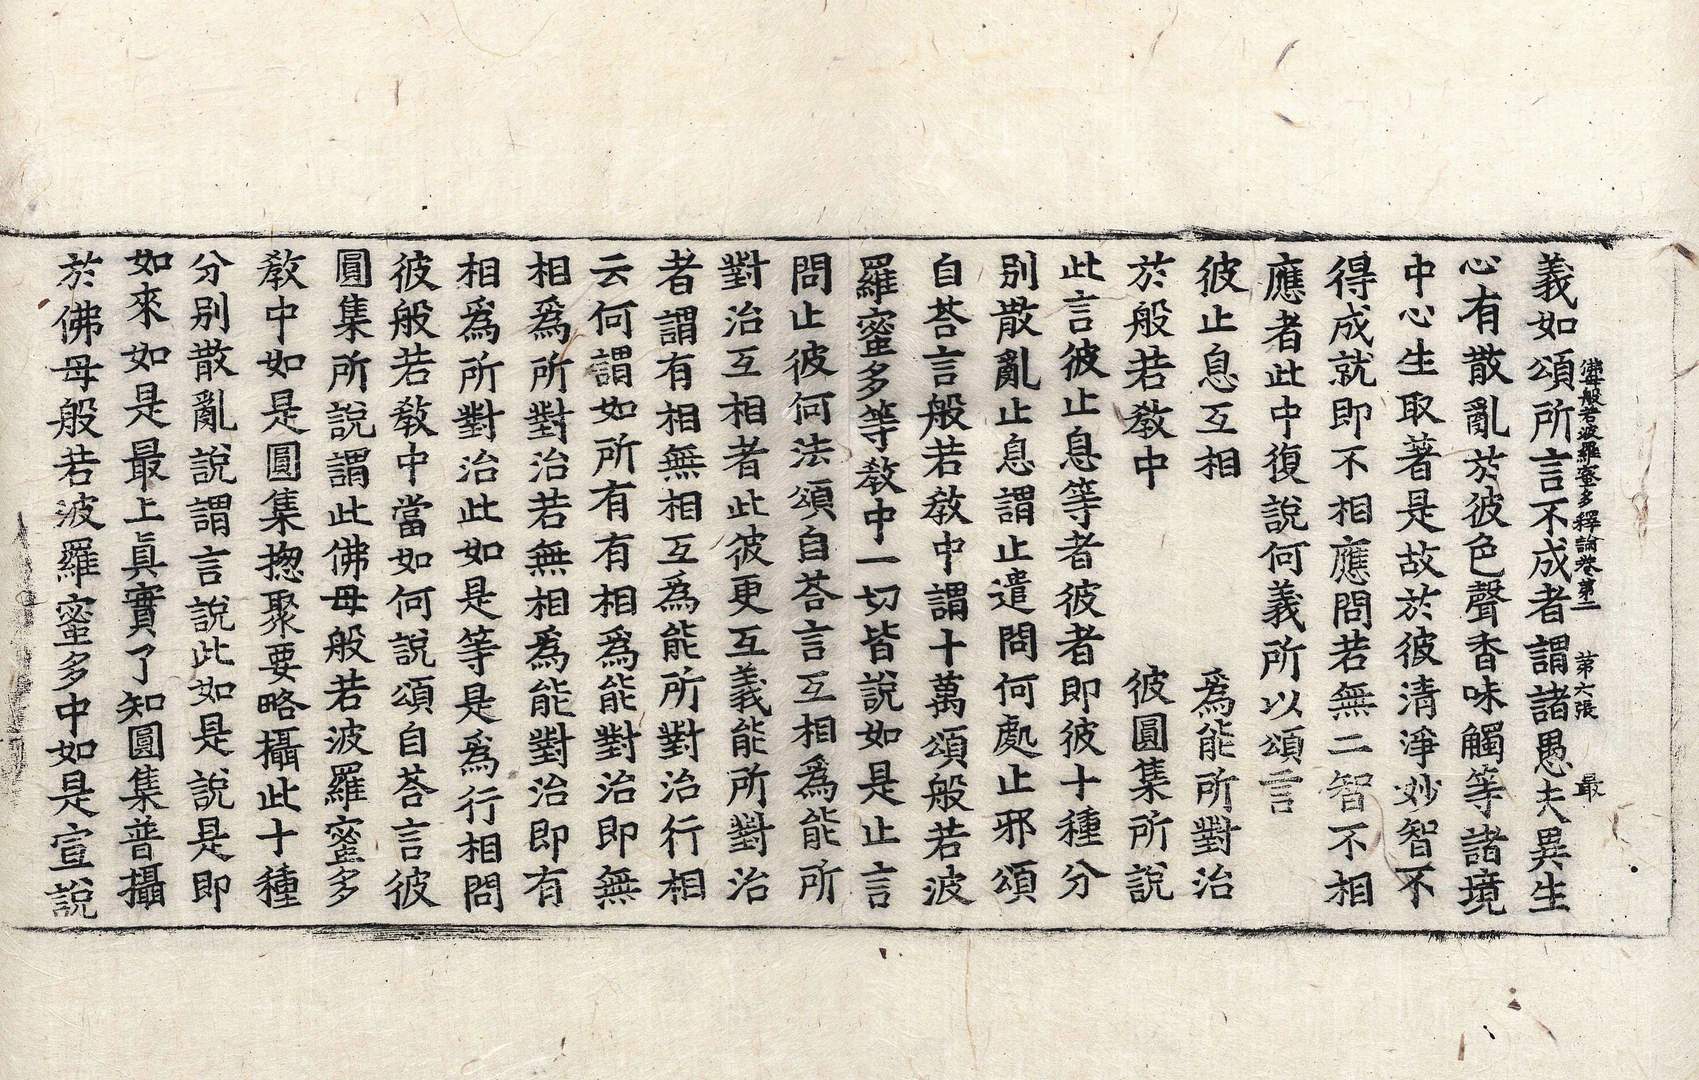 佛母般若波羅蜜多釋論卷第二　第六張　最
義如頌所言不成者謂諸愚夫異生
心有散亂於彼色聲香味觸等諸境
中心生取著是故於彼清淨妙智不
得成就即不相應問若無二智不相
應者此中復說何義所以頌言
彼止息互相　爲能所對治
於般若教中　彼圓集所說
此言彼止息等者彼者即彼十種分
別散亂止息謂止遣問何處止邪頌
自荅言般若教中謂十萬頌般若波
羅蜜多等教中一切皆說如是止言
問止彼何法頌自荅言互相爲能所
對治互相者此彼更互義能所對治
者謂有相無相互爲能所對治行相
云何謂如所有有相爲能對治即無
相爲所對治若無相爲能對治即有
相爲所對治此如是等是爲行相問
彼般若教中當如何說頌自荅言彼
圓集所說謂此佛母般若波羅蜜多
教中如是圓集揔聚要略攝此十種
分別散亂說謂言說此如是說是即
如來如是最上眞實了知圓集普攝
於佛母般若波羅蜜多中如是宣說